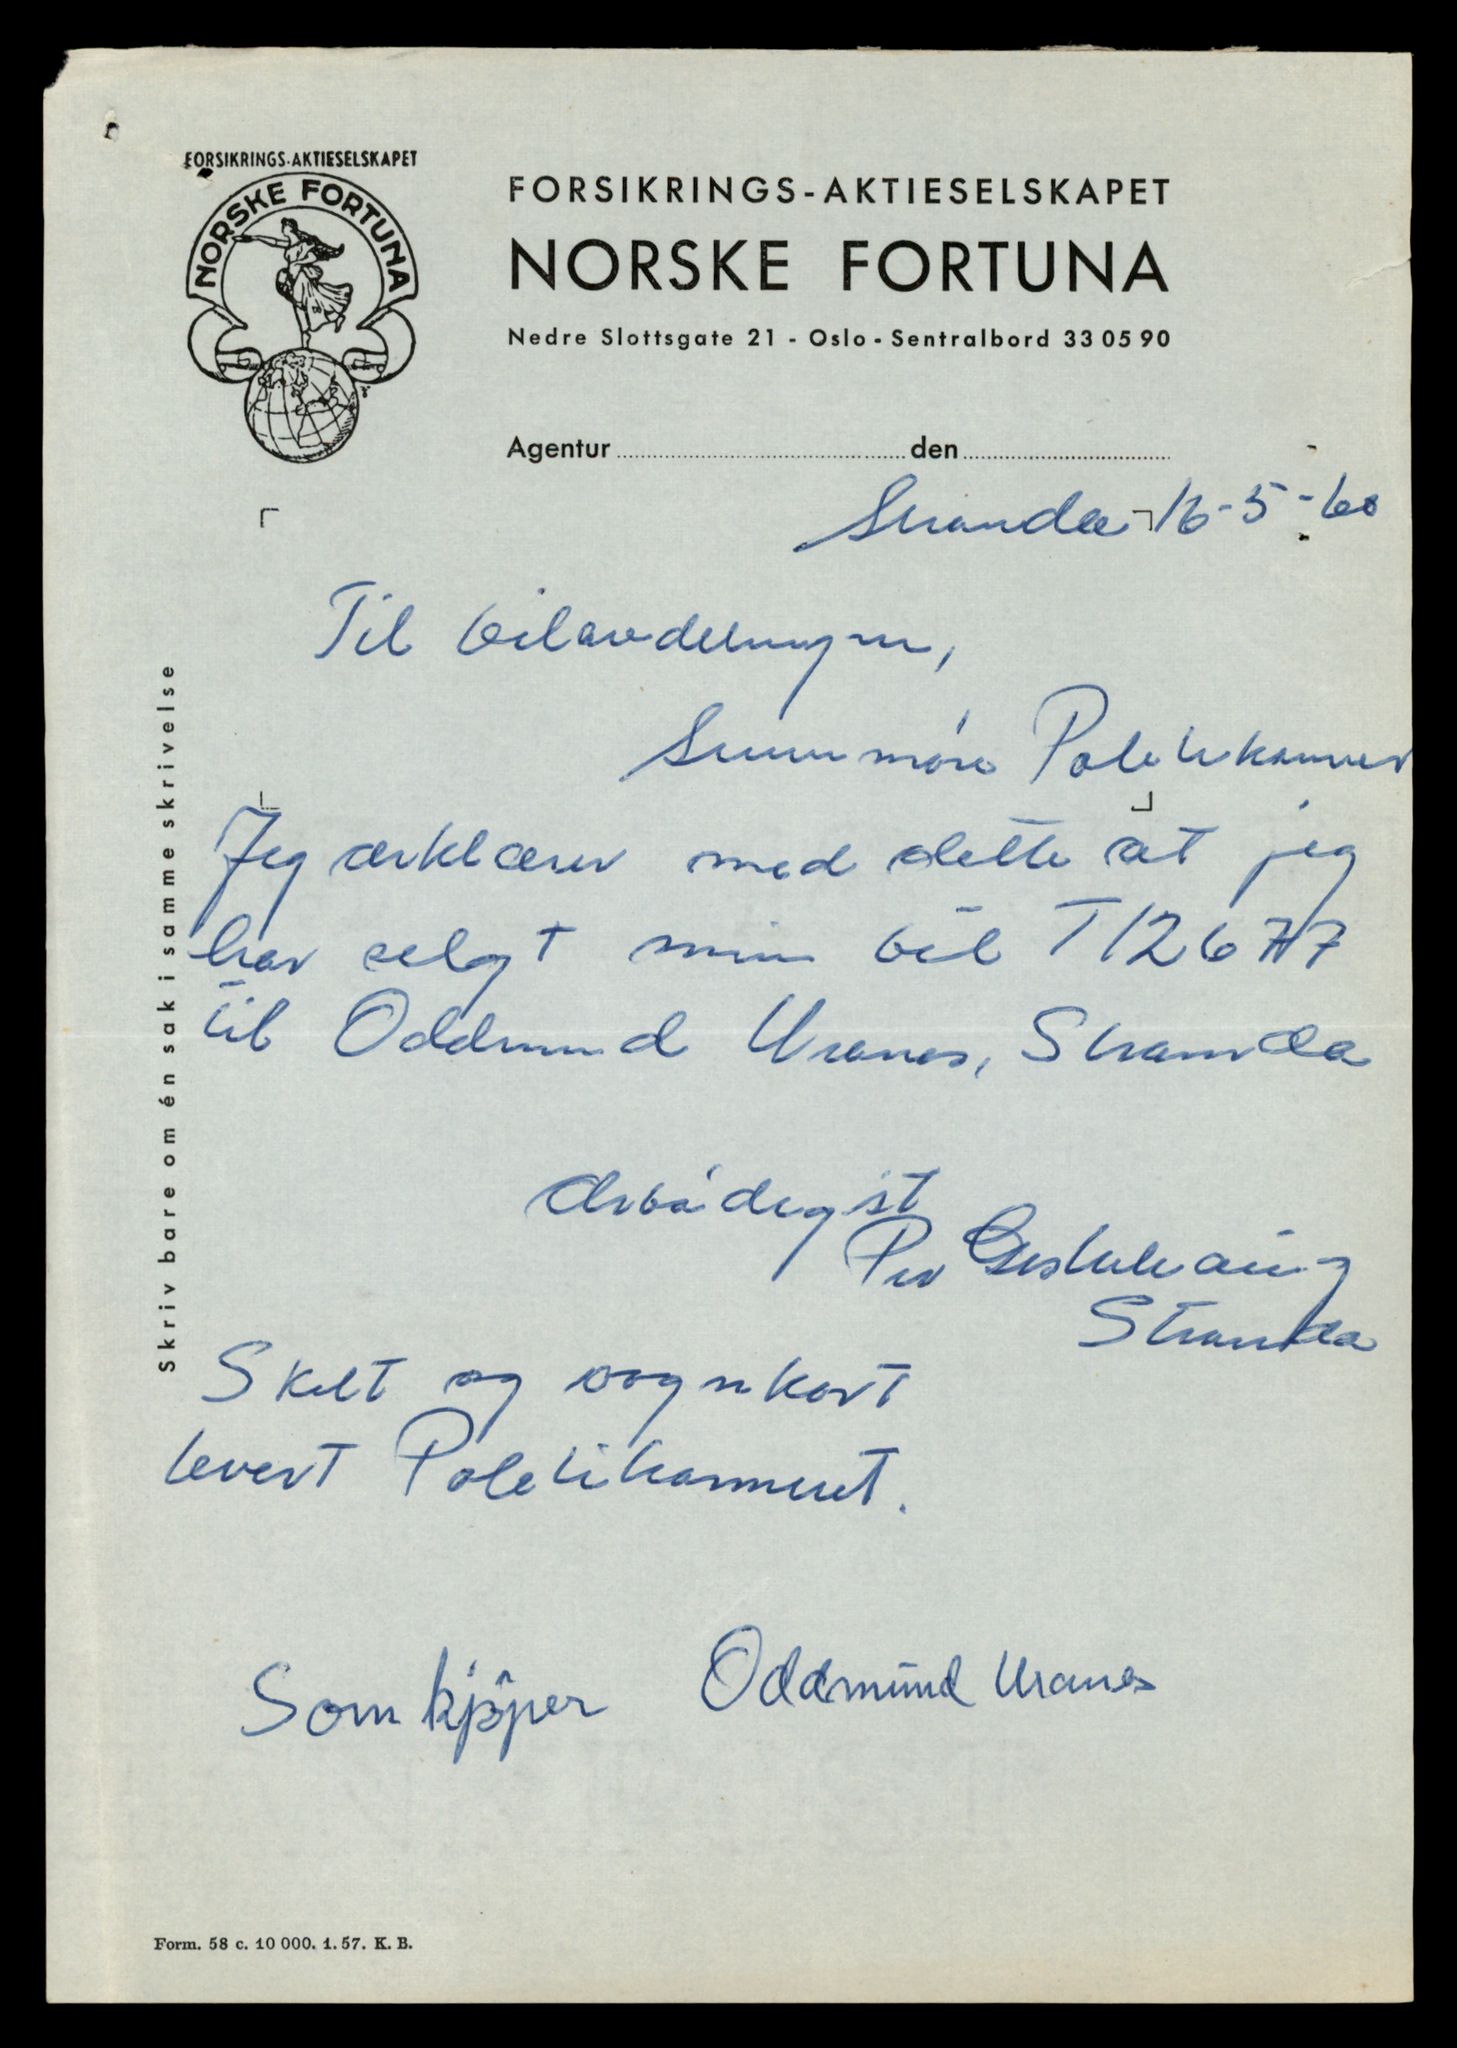 FORSIKRINGS-AKTIESELSKAPET
NORSKE FORTUNA
FORSIKRINGS-AKTIESELSKAPET
NORSKE FORTUNA
Nedre Slottsgate 21 - Oslo - Sentralbord 33 05 90
Agentur den
Stranda 16-5-60
Til bilavdelingen,
Sunnmøre Politikammer
Jeg ærklærer med dette at jeg
har selgt min bil T12677
til Oddmund Uranes, Stranda
Ærbødigst
Per
Stranda
Skilt og vognkort
levert Politikammeret.
Som kjøper Oddmund Uranes
Skriv bare om én sak i samme skrivelse
Form. 58 c. 10 000. 1. 57. K. B.